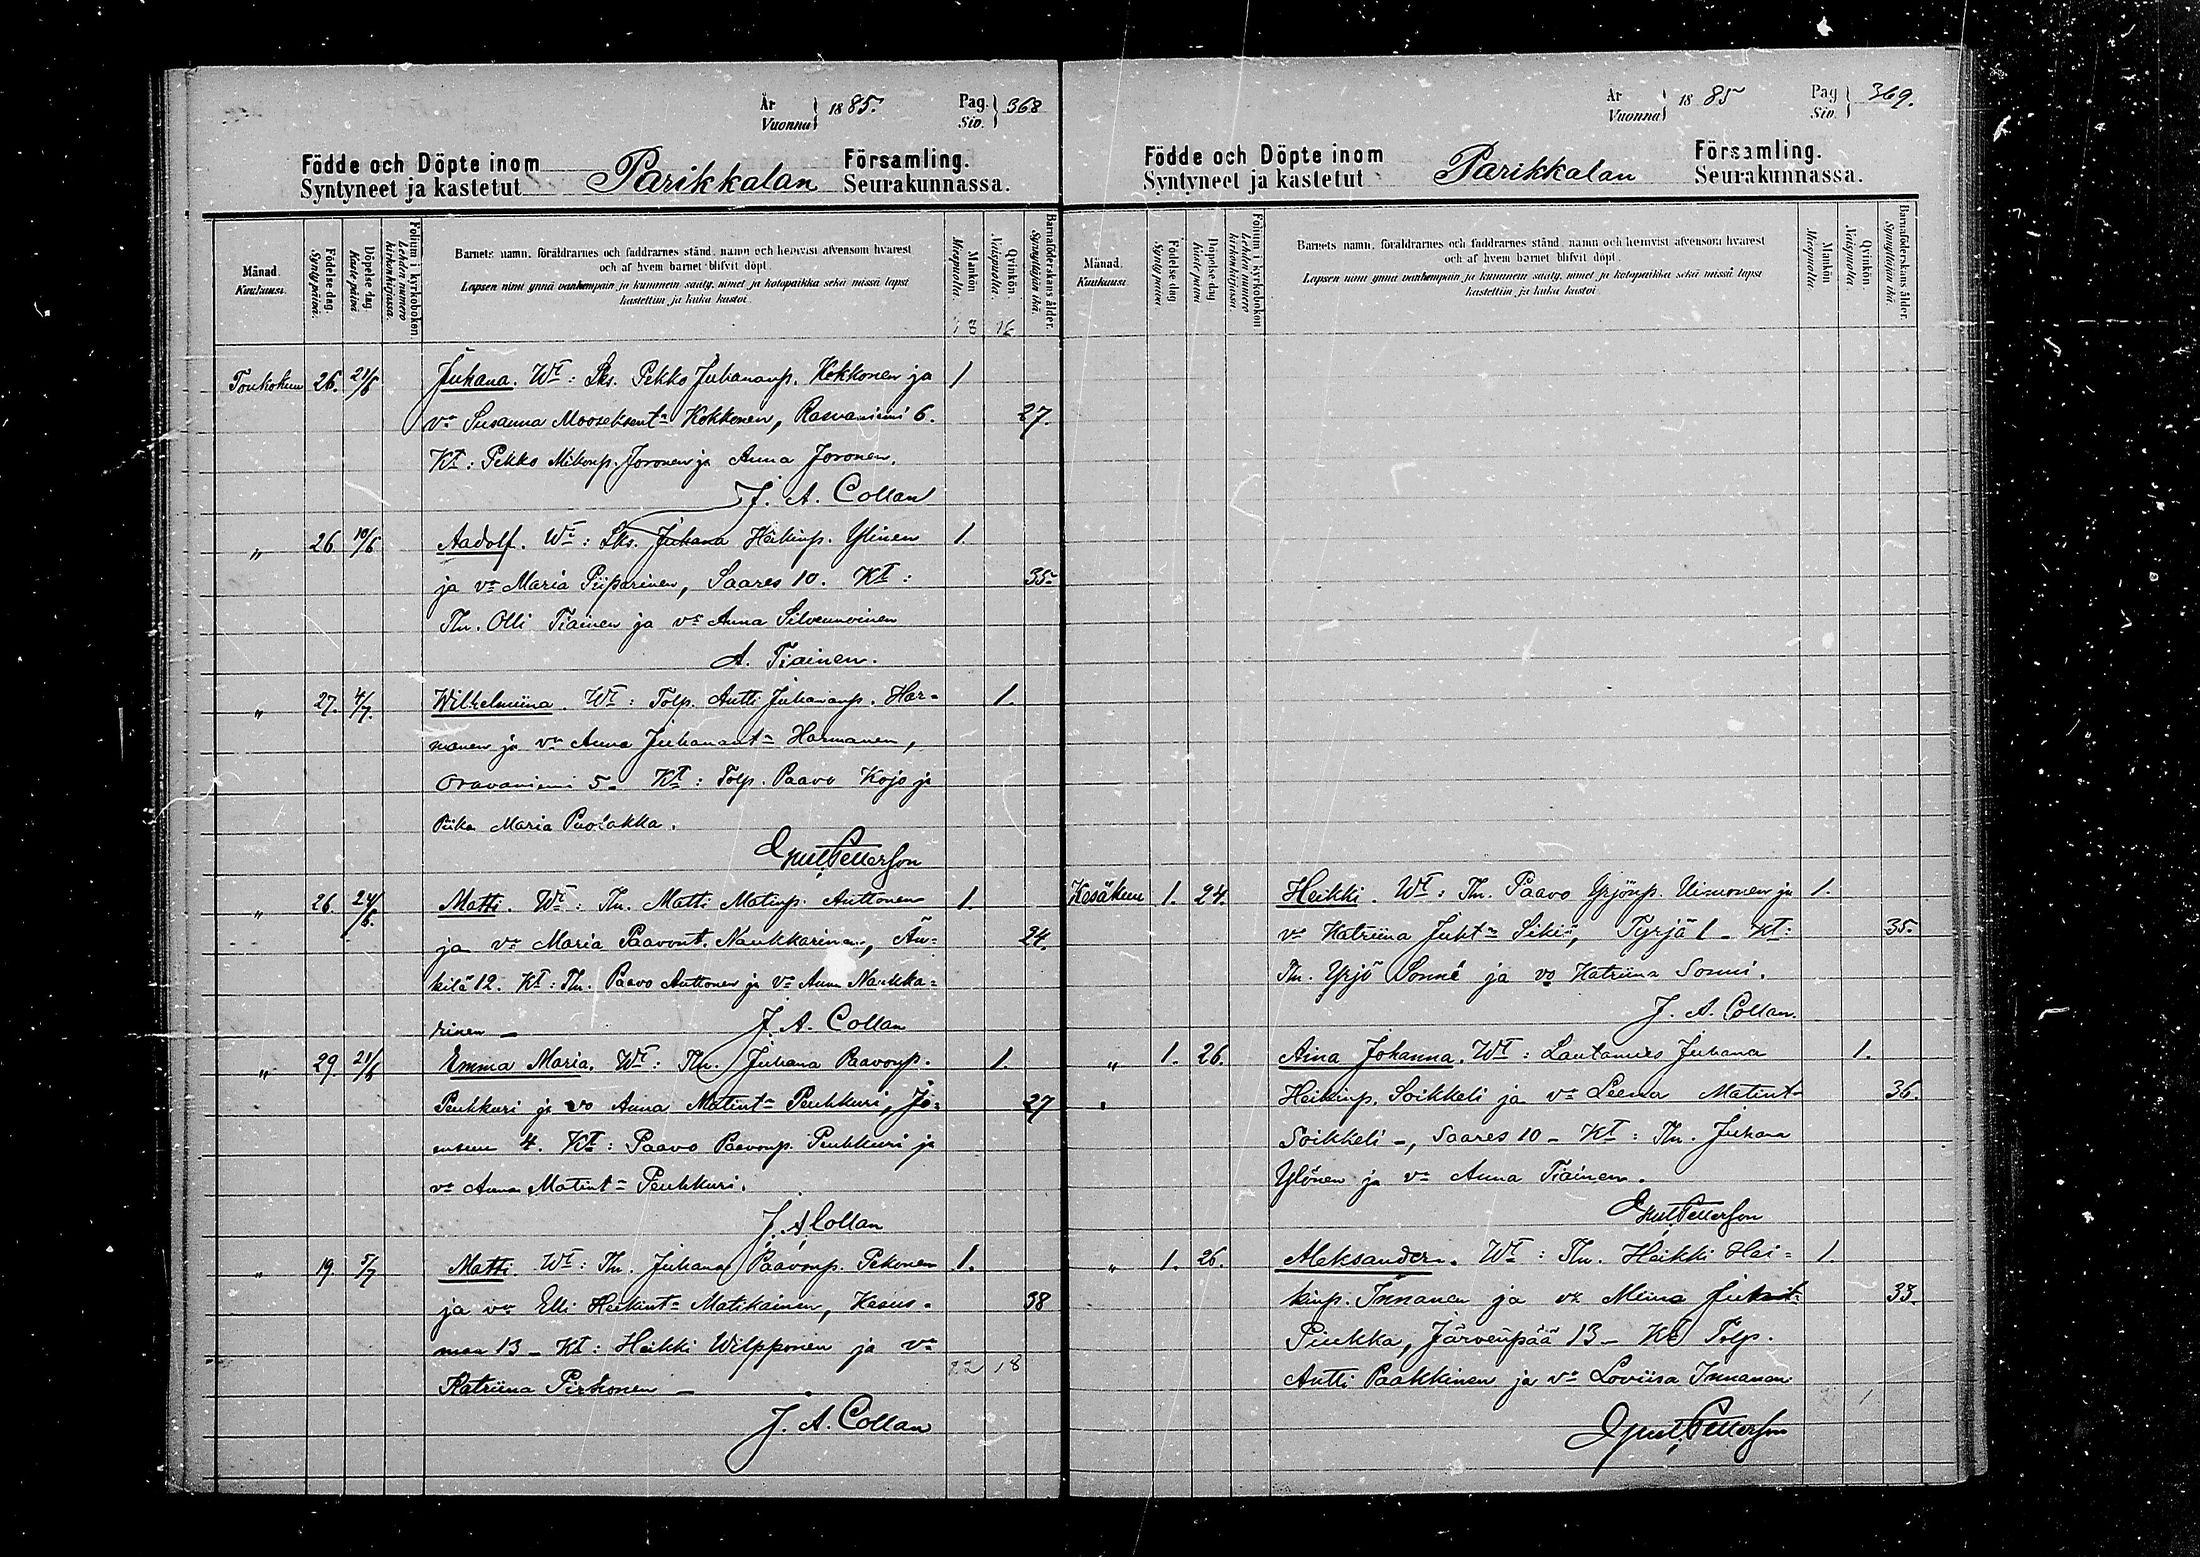 År
Vuonna } 1885. Pag.
Siv. } 368
Födde och Döpte inom
Syntyneet ja kastetut Parikkalan Församling.
Seurakunnassa.
Månad.
Kuukausi.
Födelse-dag.
Syntypäivä.
Döpelse-dag.
Kastepäivä
Folium i kyrkoboken
Lehden numero
kirkonkirjassa.
Barnets namn, föräldrarnes och faddrarnes stånd, namn och hemvist äfvensom hvarest
och af hvem barnet blifvit döpt.
Lapsen nimi ynnä vanhempain ja kummein sääty, nimet ja kotopaikka sekä missä lapsi
kastettiin ja kuka kastoi.
Mankön
Miespuolia.
Qvinkön
Naispuolia.
Barnaföderskans ålder.
Synnyttäjän ikä.
Toukokuu 26. 21/6 Juhana. Wt: Lks. Pekko Juhananp. Kokkonen ja 1
vo Susanna Mooseksent. Kokkonen, Rasvaniemi 6. 27.
Kt: Pekko Mikonp. Joronen ja Anna Joronen.
J. A. Collan
„ 26. 10/6 Aadolf. Wt: Lks. Juhana Heikinp. Ylinen 1.
ja vo Maria Piiparinen, Saares 10. Kt: 35
Thn. Olli Tiainen ja vo Anna Silvennoinen
A. Tiainen.
„ 27. 4/7. Wilhelmiina. Wt: Tolp. Antti Juhananp. Har- 1.
manen ja vo Anna Juhanant. Harmanen,
Oravaniemi 5 Kt: Tolp. Paavo Kojo ja
Piika Maria Puolakka.
Petterson
„ 26. 24/6. Matti. Wt: Thn. Matti Matinp. Auttonen 1.
ja vo Maria Paavont. Naukkarinen, Än- 24.
kilä 12. Kt: Thn. Paavo Auttonen ja vo Anna Naukka-
rinen J. A. Collan
„ 29. 21/6 Emma Maria. Wt: Thn. Juhana Paavonp. 1.
Peuhkuri ja vo Anna Matint. Peuhkuri, Jo- 27
ensuu 4. Kt: Paavo Paavonp. Peuhkuri ja
vo Anna Matint. Peuhkuri.
J. A. Collan
„ 19 5/7 Matti Wt: Thn. Juhana Paavonp. Pekonen 1.
ja vo Elli Heikint. Matikainen, Kesus- 38
maa 13 - Kt: Heikki Wilpponen ja vo
Katriina Pirhonen - 22 18
J. A. Collan
År
Vuonna } 1885 Pag
Siv. } 369.
Födde och Döpte inom
Syntyneet ja kastetut Parikkalan Församling.
Seurakunnassa.
Månad.
Kuukausi.
Födelse-dag
Syntypäivä.
Döpelse-dag
Kastepäivä
Folium i kyrkobokon
Lehden numero
kirkonkirjassa.
Barnets namn, föräldrarnes och faddrarnes stånd, namn och hemvist äfvensom hvarest
och af hvem barnet blifvit döpt.
Lapsen nimi ynnä vanhempain ja kummein sääty, nimet ja kotopaikka sekä missä lapsi
kastettiin ja kuka kastoi.
Mankön
Miespuolia.
Qvinkön.
Naispuolia.
Barnaföderskans ålder.
Synnyttäjän ikä.
Kesäkuu 1. 24. Heikki. Wt: Thn. Paavo Yrjönp. Uimonen ja 1.
vo Katriina Juht. Sikiö, Tyrjä 1 - Kt: 35.
Thn. Yrjö Sonni ja vo Katriina Sonni.
J. A. Collan.
„ 1. 26. Aina Johanna. Wt: Lautamies Juhana 1.
Heikinp. Soikkeli ja vo Leena Matint. 36.
Soikkeli -, Saares 10 - Kt: Thn. Juhana
Ylönen ja vo Anna Tiainen.
Petterson
„ 1. 26. Aleksander. Wt: Thn. Heikki Hei- 1.
kinp. Innanen ja vo Miina 33.
Piukka, Järvenpää 13 - Kt Tolp.
Antti Paakkinen ja vo Loviisa Innanen
Petterson